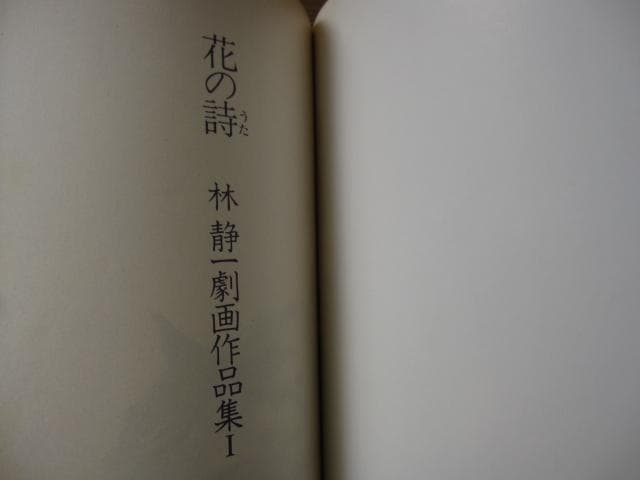 花の詩
うた
林静一劇画作品集I